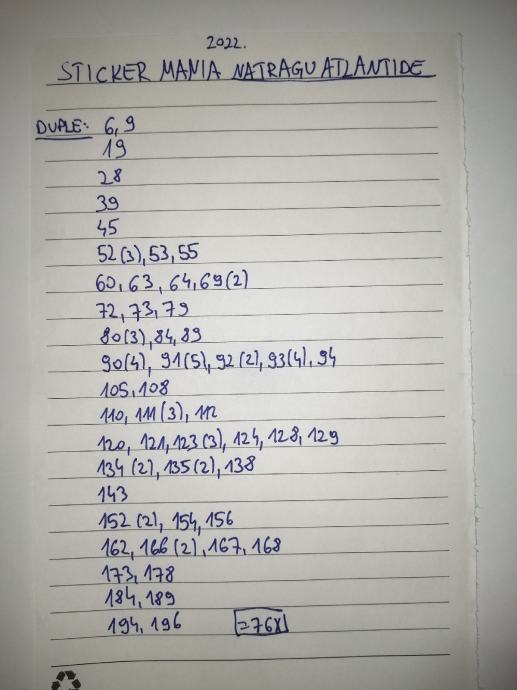 2022.
STICKER MANIA NATRAGU ATLANTIDE
DUPLE: 6, 9
19
28
39
45
52 (3), 53, 55
60, 63, 64, 69 (2)
72, 73, 79
80 (3), 84, 89
90 (4), 91 (5), 92 (2), 93 (4), 94
105, 108
110, 111 (3), 112
120, 121, 123 (3), 124, 128, 129
134 (2), 135 (2), 138
143
152 (2), 154, 156
162, 166 (2), 167, 168
173, 178
184, 189
194, 196 =76X